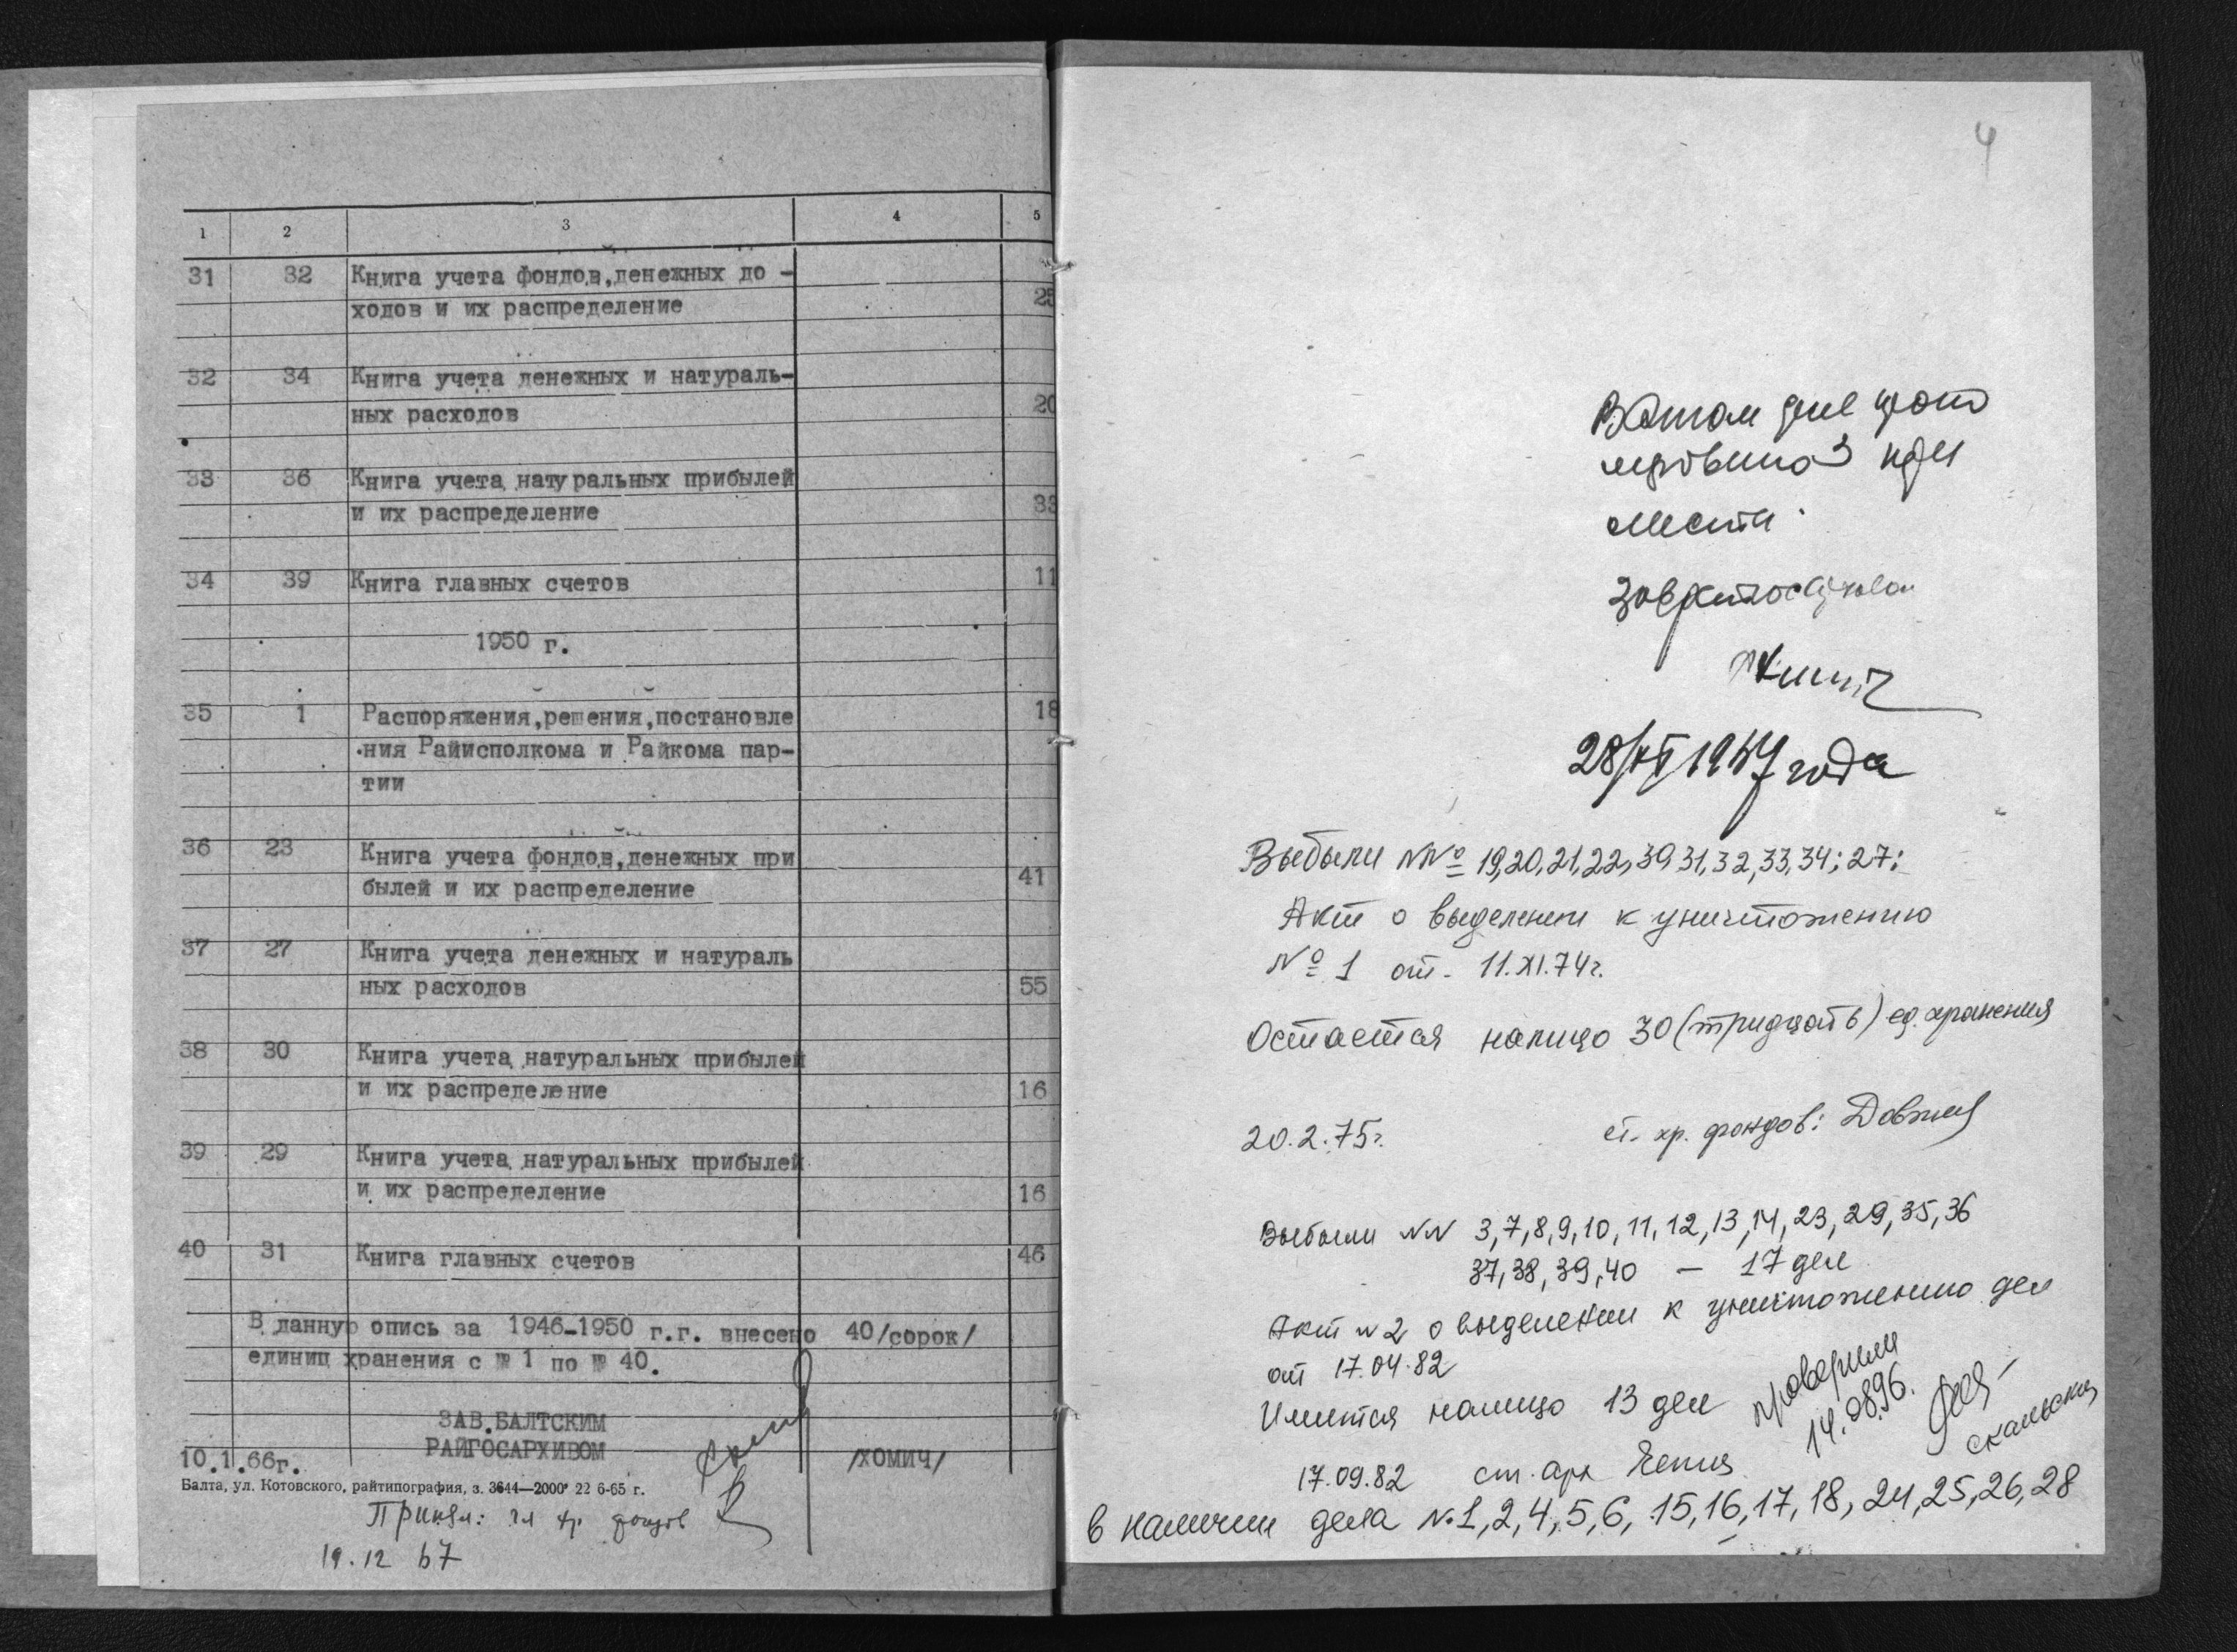 1 2 3 4 5
31 32 Книга учета фондов,денежных до -
ходов и их распределение 25
32 34 Книга учета денежных и натураль-
ных расходов 20
33 36 Книга учета натуральных прибылей
и их распределение 33
34 39 Книга главных счетов 11
1950 г.
35 1 Распоряжения,решения,постановле 18
ния Райисполкома и Райкома пар-
тии
36 23 Книга учета фондов,денежных при
былей и их распределение 41
37 27 Книга учета денежных и натураль
ных расходов 55
38 30 Книга учета натуральных прибылей
и их распределение 16
39 29 Книга учета натуральных прибылей
и их распределение 16
40 31 Книга главных счетов 46
В данную опись за 1946-1950 г.г. внесено 40/сорок/
единиц хранения с № 1 по № 40.
ЗАВ.БАЛТСКИМ
РАЙГОСАРХИВОМ
10.1.66г. /ХОМИЧ/
Балта, ул. Котовского, райтипография, з. 3644—2000 22 6-65 г.
Принял: гл хр фондов
19.12 67
4
В этом деле прону
меровано 3 
листа.

28/XI 1967 года
Выбыли №№ 19,20,21,22,39 31,32,33,34; 27;
Акт о выделении к уничтожению
№ 1 от 11.XI.74г.
Остается налицо 30 (тридцать) ед. хранения
20.2.75г. ст. хр. фондов:
Выбыли NN 3,7,8,9,10,11,12,13,14,23,29,35,36
37,38,39,40 — 17 дел
Акт N2 о выделении к уничтожению дел
от 17.04.82
Имеется налицо 13 дел
проверили
14.08.96.
Скальская
17.09.82 ст. арх
в наличии дела N.1,2,4,5,6,15,16,17,18,24,25,26,28